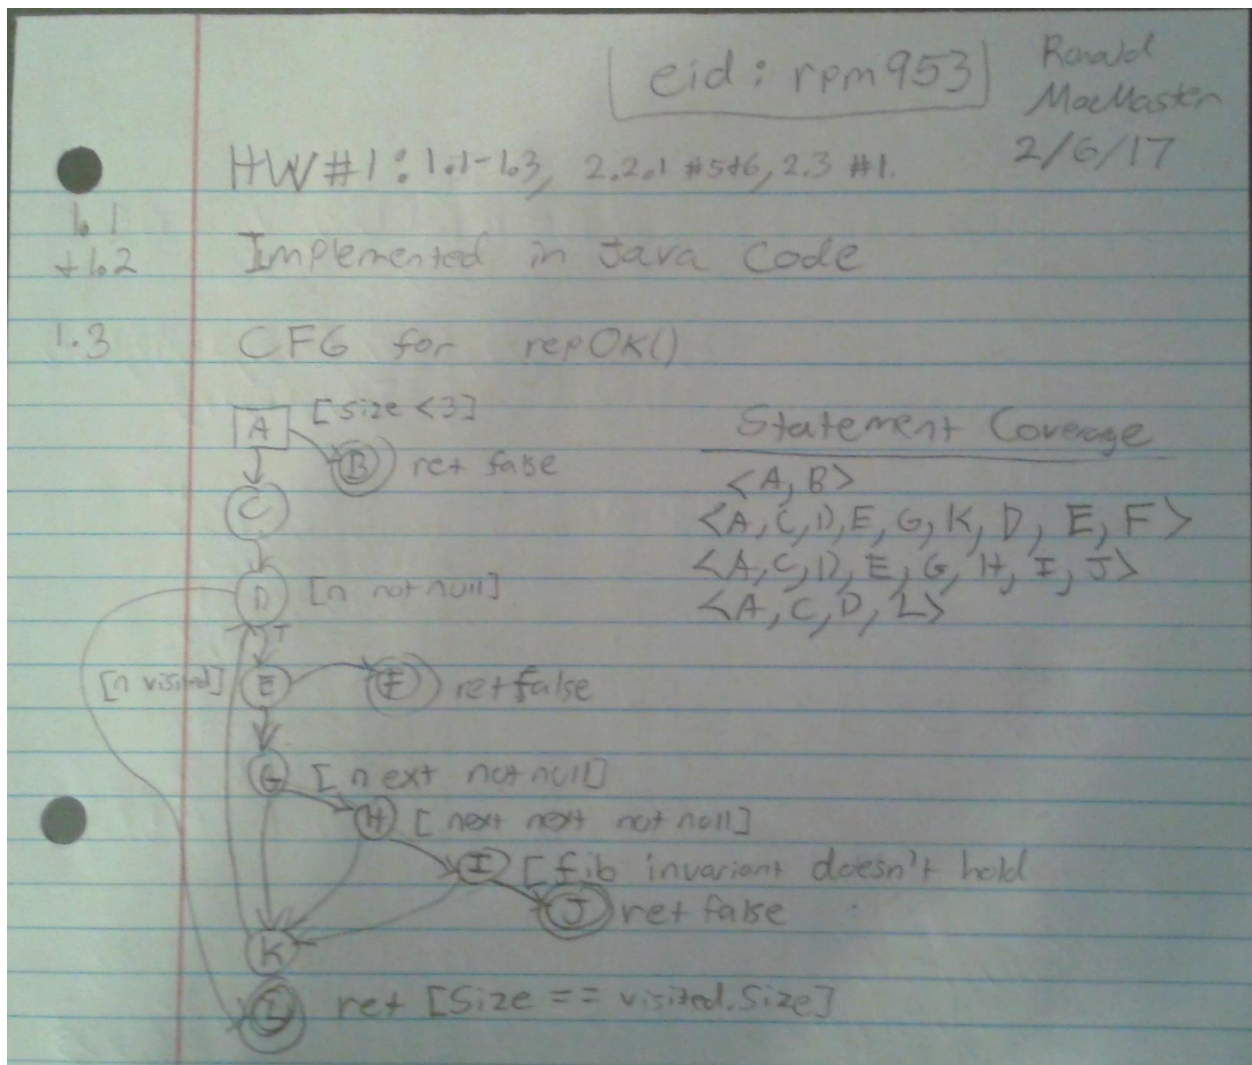 eid: rpm953
Ronald
MacMaster
2/6/17
HW#1: 1.1-1.3, 2.2.1 #5+6, 2.3 #1.
1.1
+1.2 Implemented in Java Code
1.3 CFG for repOK()
A [size <3]
B ret false
C
D [n not null]
T
[n visited] E F ret false
G [next not null]
H [next next not null]
I [fib invariant doesn't hold
J ret false
K
L ret [Size == visited.Size]
Statement Coverage
<A, B>
<A, C, D, E, G, K, D, E, F>
<A, C, D, E, G, H, I, J>
<A, C, D, L>